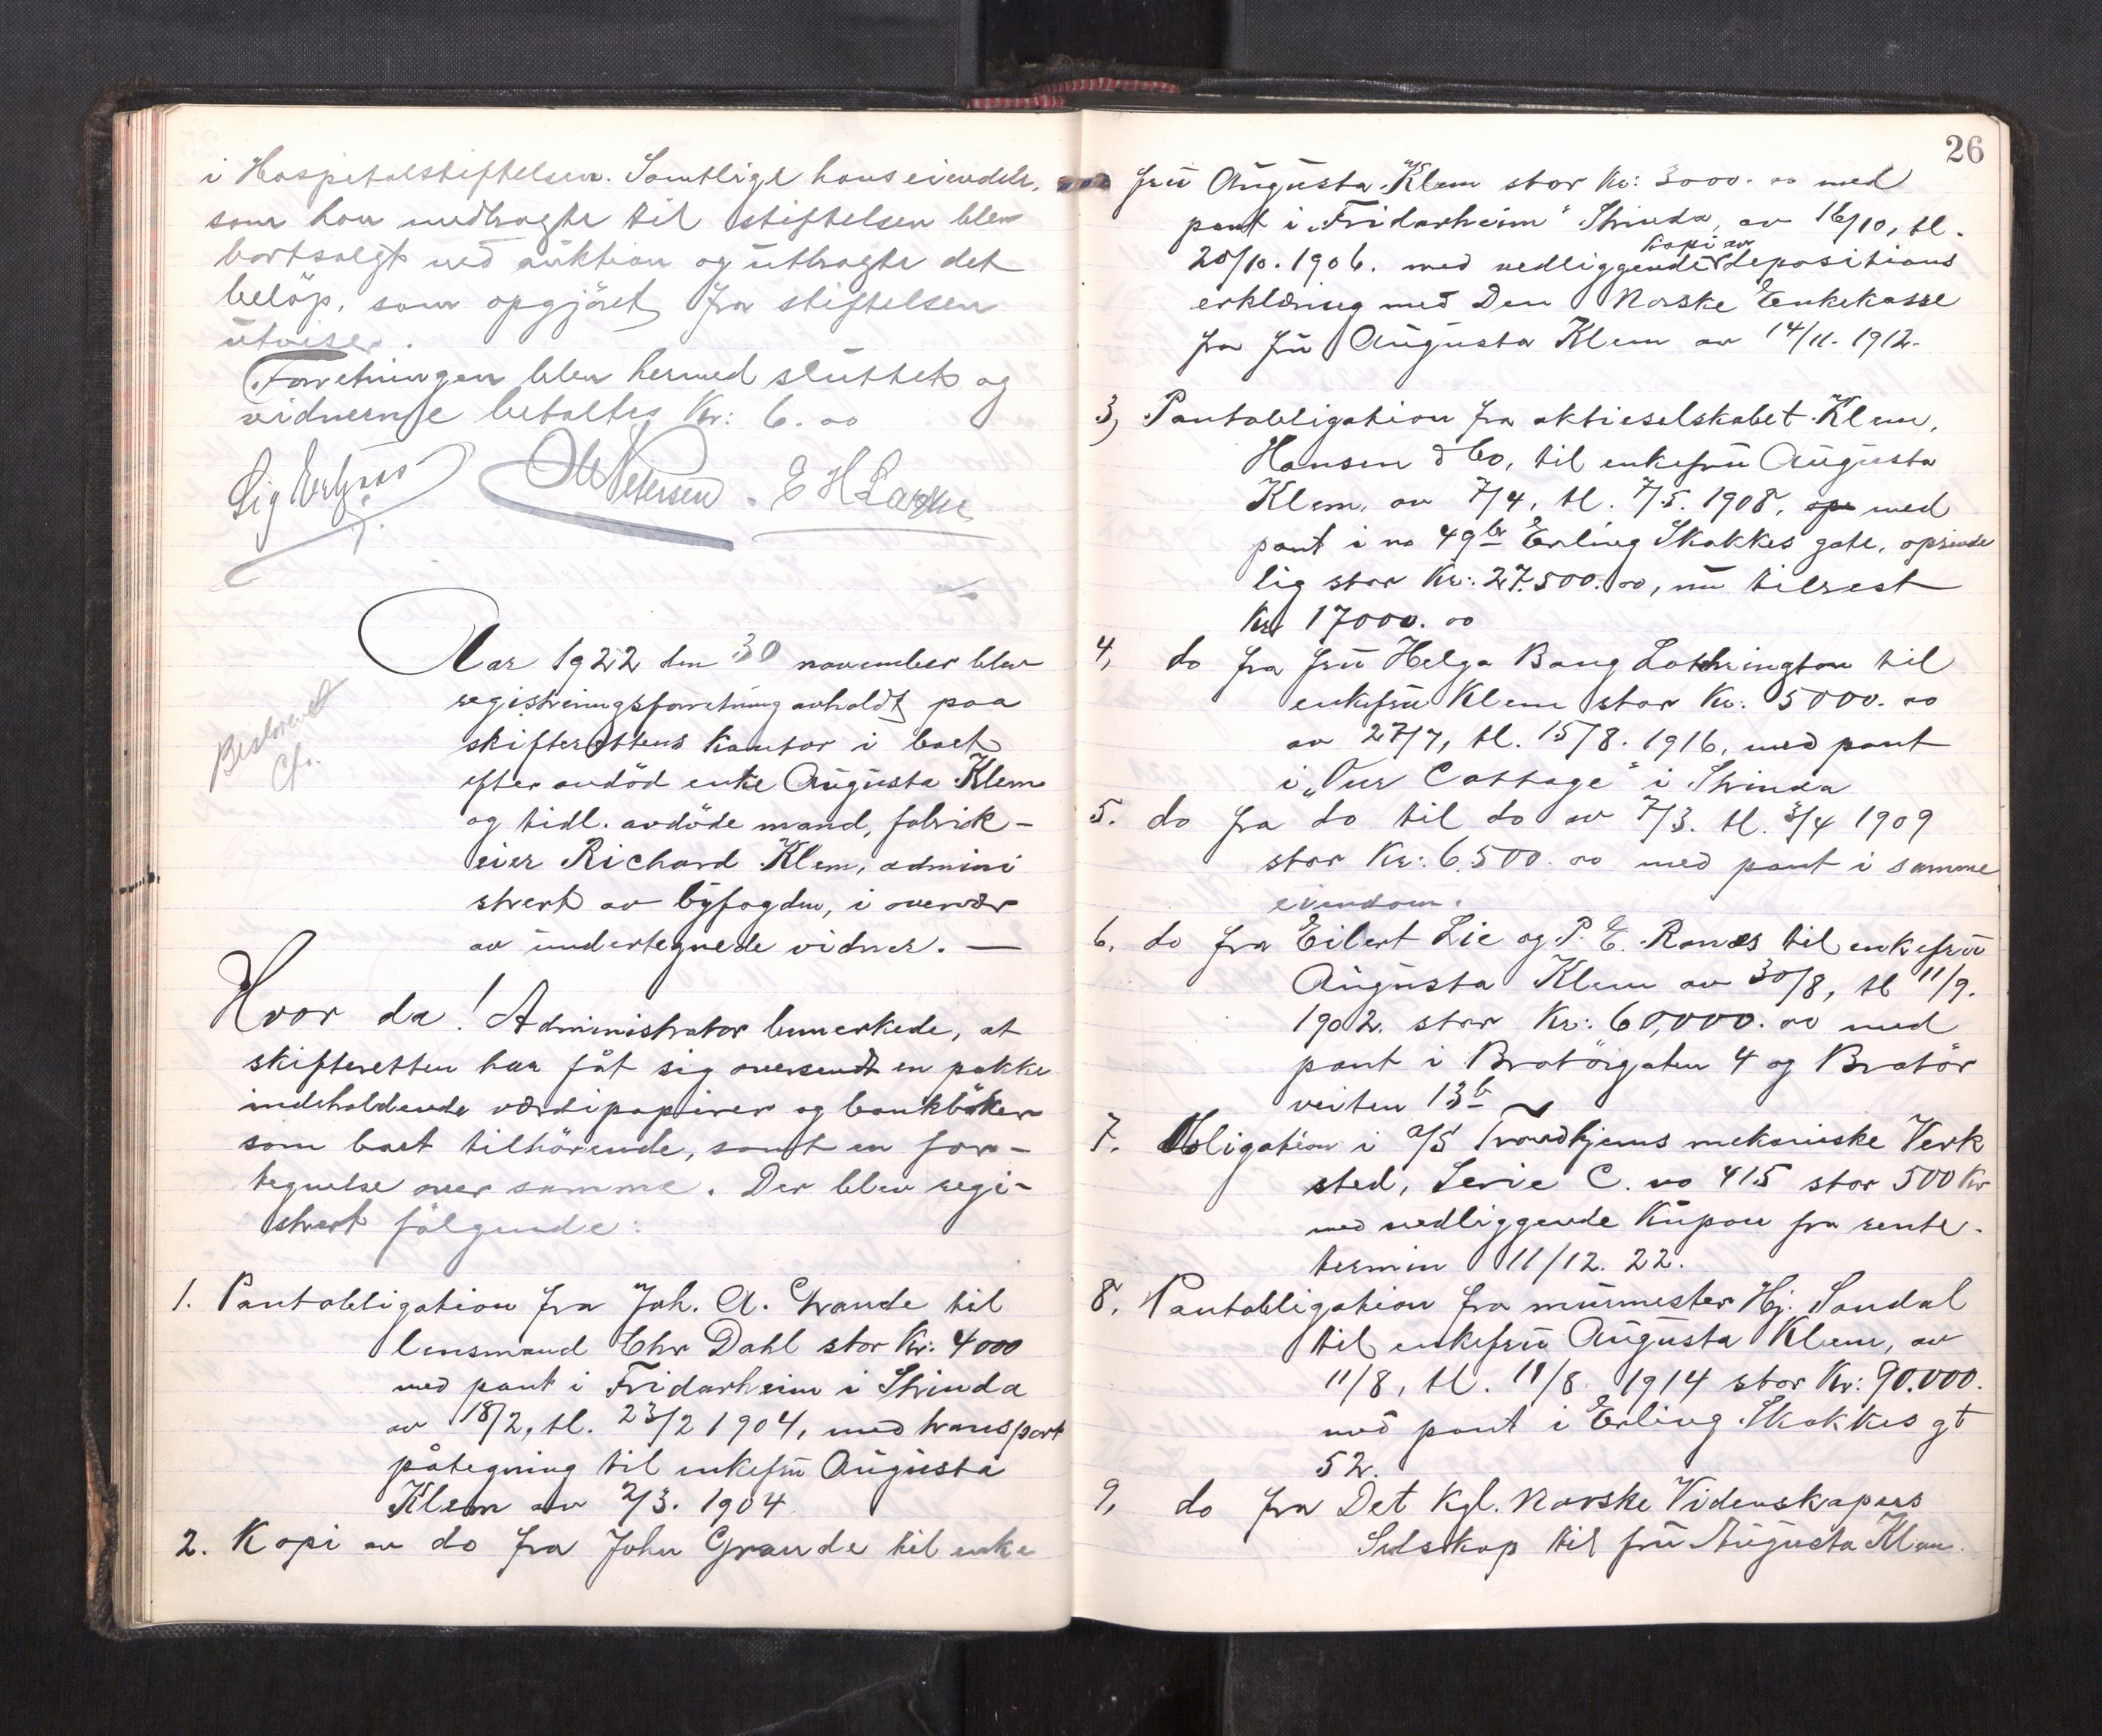 i Hospitalstiftelsen. Samtlige hans eiendele,
som han medbragte til stiftelsen blev
bortsolgt ved auktion og utbragte det
beløp, som opgjöret fra stiftelsen
utviser.
Forretningen blev hermed sluttet og
vidnerne betaltes Kr: 6.00
E H Larsen
Aar 1922 den 30 november blev
registreringsforretning avholdt paa
skifterettens kontor i boet
efter avdöd enke Augusta Klem
og tidl. avdöde mand, fabrik-
eier Richard Klem, admini
strert av byfogden, i overvær
av undertegnede vidner. —
Hvor da! Administrator bemerkede, at
skifteretten har fåt sig oversendt en pakke
indeholdende værdipapirer og bankböker
som boet tilhörende, samt en for-
tegnelse over samme. Der blev regi-
strert fölgende:
1. Pantobligation fra Joh. A. Grande til
lensmand Chr Dahl stor Kr. 4000
med pant i Fridarheim i Strinda
av 18/2, tl. 23/2 1904, med transport
påtegning til enkefru Augusta
Klem av 2/3. 1904.
2. Kopi av do fra John Grande til enke
26
fru Augusta Klem stor Kr: 3000.00 med
pant i „Fridarheim" Strinda, av 16/10, tl.
20/10. 1906. med vedliggende kopi av depositions
erklæring med Den Norske Enkekasse
fra fru Augusta Klem av 14/11. 1912.
3) Pantobligation fra aktieselskabet Klem,
Hansen & Co, til enkefru Augusta
Klem, av 7/4, tl. 7/5. 1908, med
pant i no 49b Erling Skakkes gate, oprinde
lig stor Kr: 27.500.00, nu tilrest
Kr 17000.00
4, do fra fru Helga Bang Lothrington til
enkefru Klem stor Kr: 5000.00
av 27/7, tl. 15/8. 1916, med pant
i „Our Cottage" i Strinda
5. do fra do til do av 7/3. tl. 3/4 1909
stor Kr: 6.500.00 med pant i samme
eiendom.
6, do fra Eilert Lie og P. E. Ranes til enkefru
Augusta Klem av 30/8, tl 11/9.
1902. stor Kr: 60,000.00 med
pant i Bratörgaten 4 og Bratör
veiten 13b
7. Obligation i A/S Trondhjems mekaniske Verk
sted, Serie C. no 415 stor 500 Kr
med vedliggende Kupon fra rente-
termin 11/12. 22.
8, Pantobligation fra murmester Hj. Sandal
til enkefru Augusta Klem, av
11/8, tl. 11/8. 1914 stor Kr: 90.000.
med pant i Erling Skakkes gt
52.
9, do fra Det Kgl. Norske Videnskapers
Selskap til fru Augusta Klem.